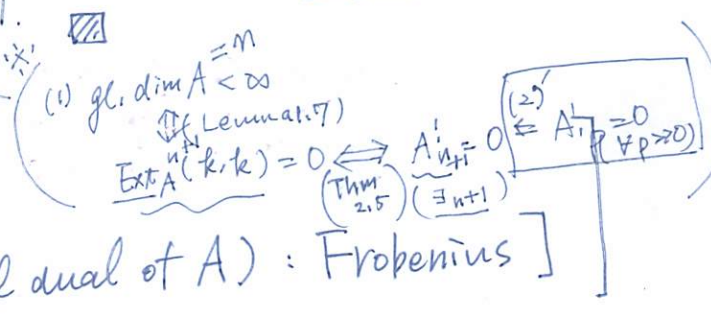 1.
※
(1) gl. dim A =n < ∞
⇕ (Lemma 1.7)
Ext_A^{n+1}(k,k) = 0 ⟺ A^!_{n+1} = 0 ⇐ A^!_p = 0
(Thm 2.5) (∃ n+1) (2)' (∀p≫0)
dual of A) : Frobenius ]